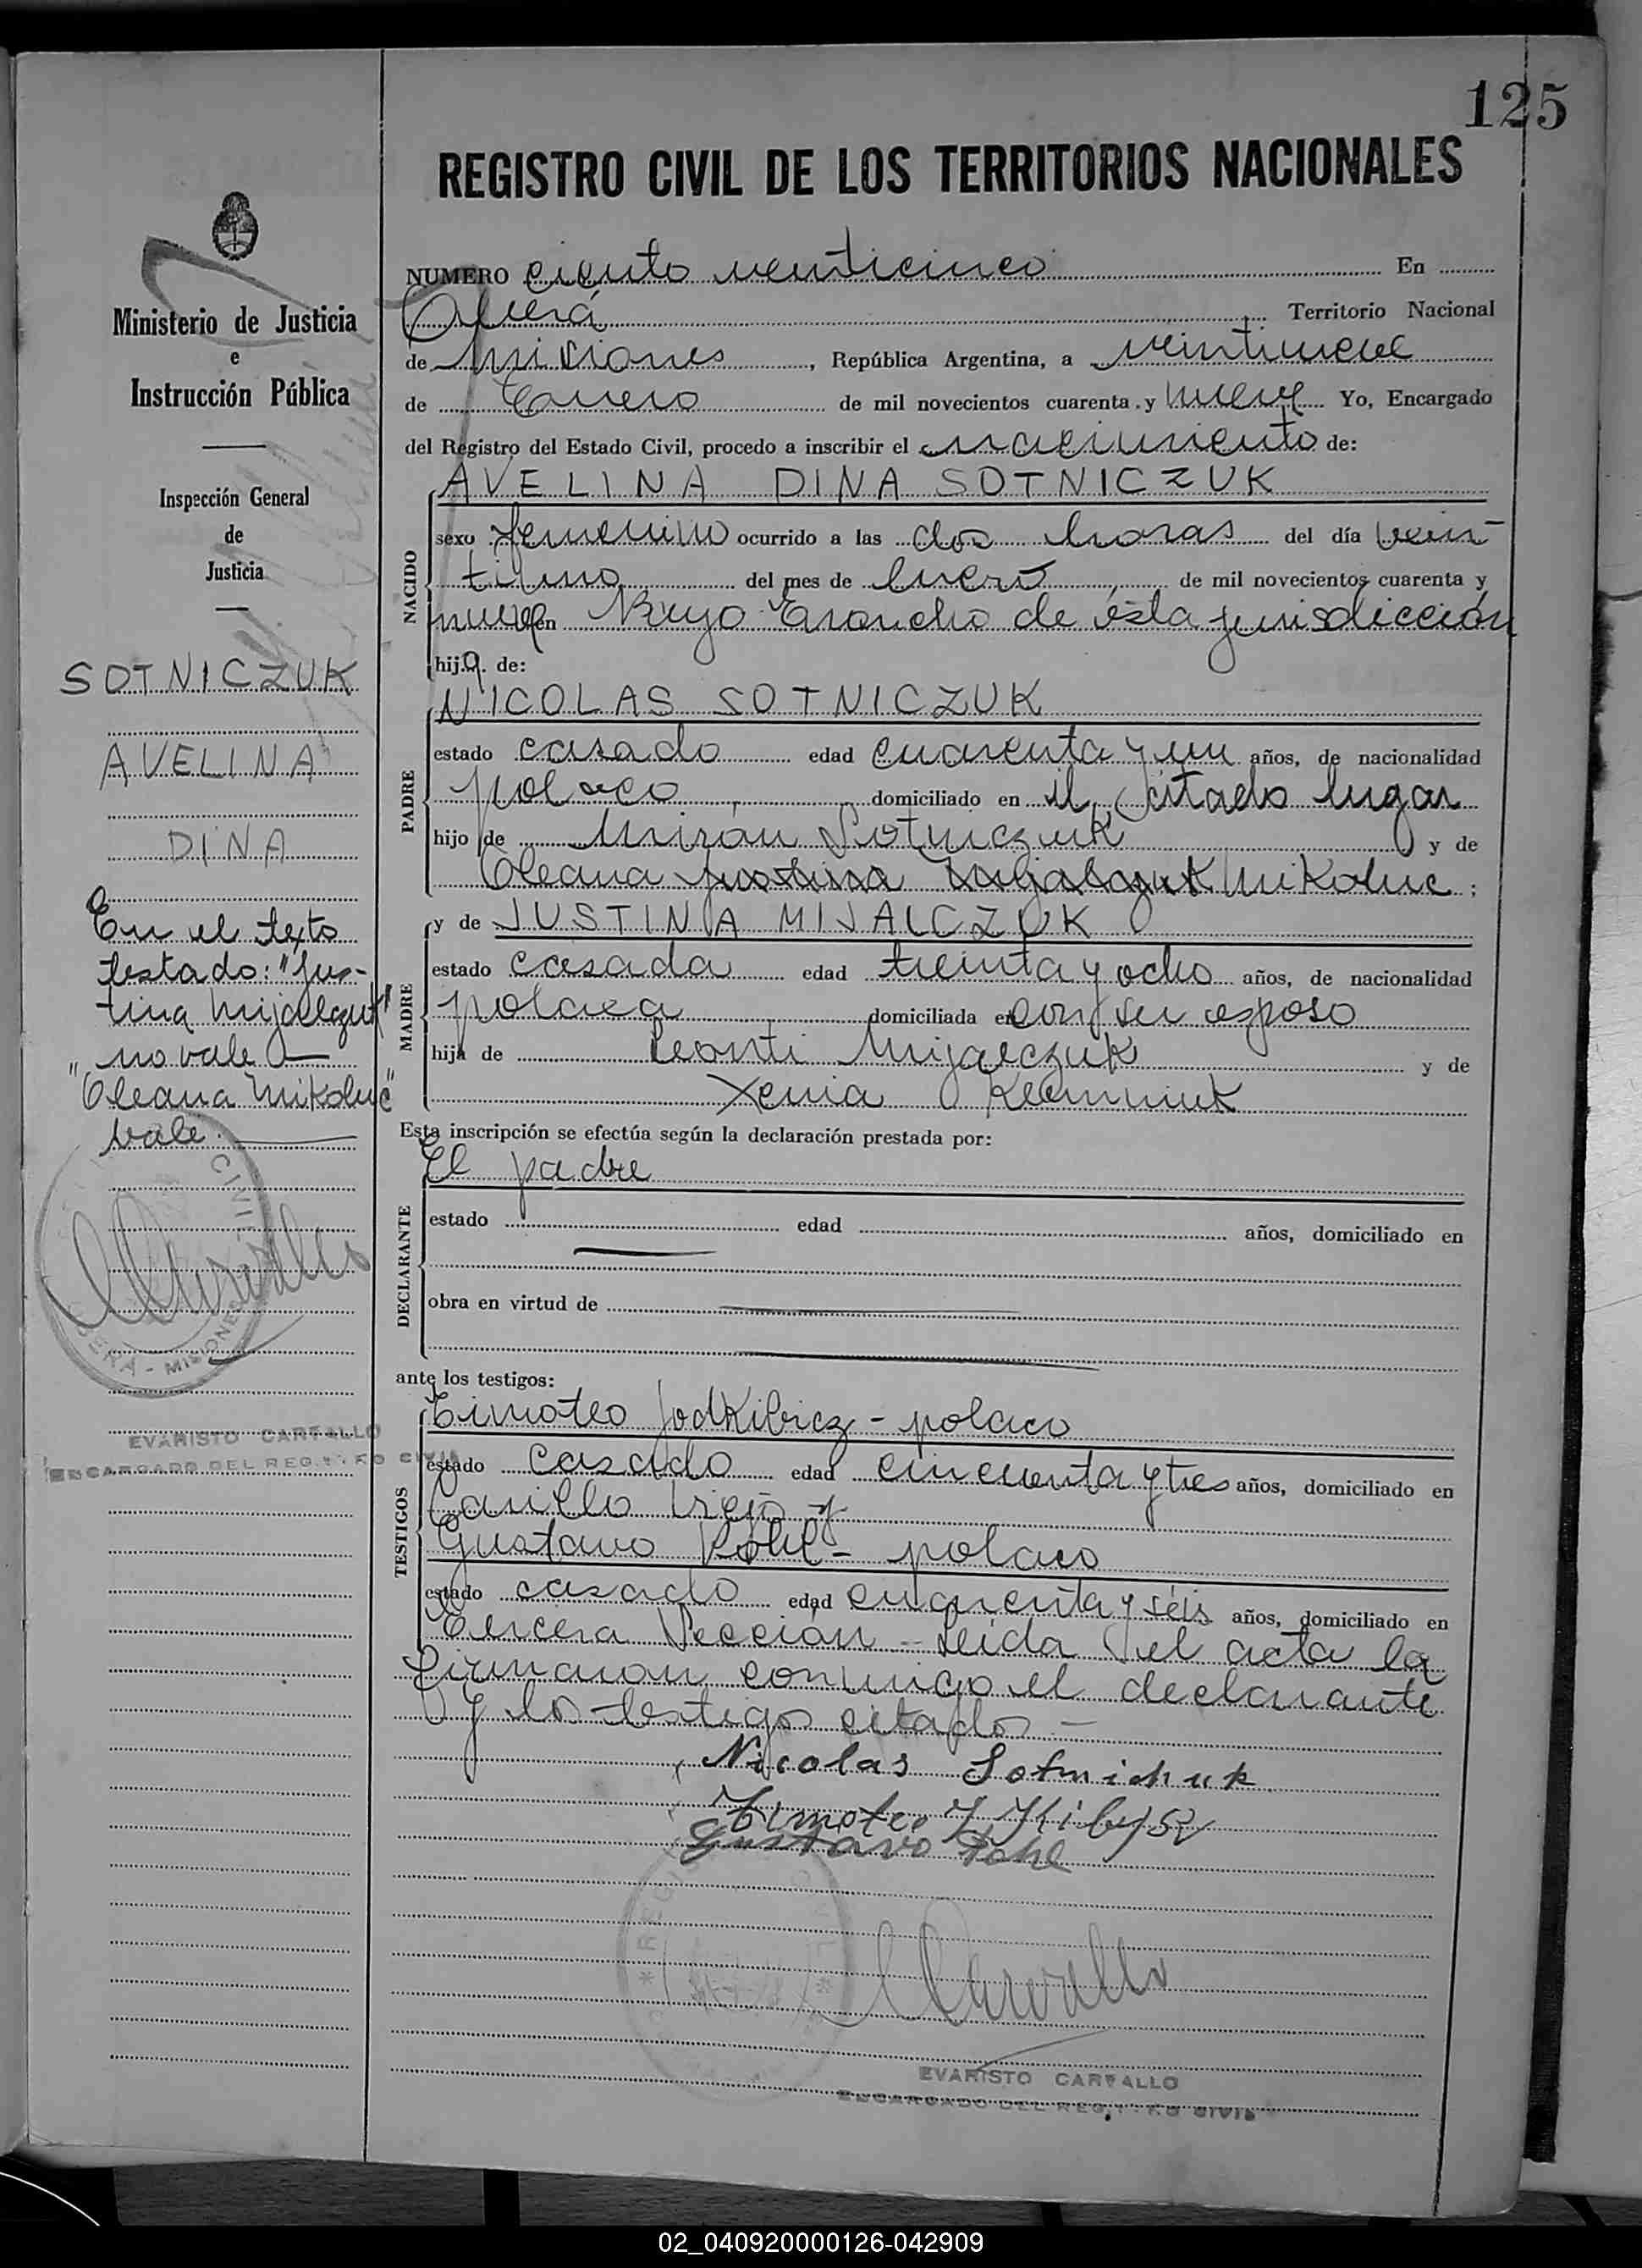 125
REGISTRO CIVIL DE LOS TERRITORIOS NACIONALES
Ministerio de Justicia
e
Instrucción Pública
Inspección General
de
Justicia
SOTNICZUK
AVELINA
DINA
En el texto
testado: "Jus-
tina Mijalczuk"
no vale
"Oleana Mikoluc"
vale.
CIVIL
MISIONES
EVARISTO CARVALLO
ENCARGADO DEL REGISTRO CIVIL
NUMERO ciento veinticinco En
Oberá Territorio Nacional
de Misiones, República Argentina, a veintinueve
de Enero de mil novecientos cuarenta y nueve Yo, Encargado
del Registro del Estado Civil, procedo a inscribir el nacimiento de:
NACIDO
AVELINA DINA SOTNICZUK
sexo femenino ocurrido a las dos horas del día vein-
tiuno del mes de Enero de mil novecientos cuarenta y
nueve en Kuyo Troncho de ésta jurisdicción
hija. de:
PADRE
NICOLAS SOTNICZUK
estado casado edad cuarenta y un años, de nacionalidad
polaco domiciliado en el citado lugar
hijo de Mirón Sotniczuk y de
Oleana Justina Mijalczuk Mikoluc;
MADRE
y de JUSTINA MIJALCZUK
estado casada edad treinta y ocho años, de nacionalidad
polaca domiciliada en con su esposo
hija de Leonti Mijalczuk y de
Xenia
Esta inscripción se efectúa según la declaración prestada por:
DECLARANTE
El padre
estado edad años, domiciliado en
obra en virtud de
ante los testigos:
TESTIGOS
Timoteo Jodkibicz - polaco
estado casado edad cincuenta y tres años, domiciliado en
Viejo y
Gustavo Pohl - polaco
estado casado edad cuarenta y séis años, domiciliado en
Tercera Sección - Leída el acta la
firmaron conmigo el declarante
y los testigos citados -
Nicolas Sotnichuk
Timoteo
Gustavo Pohl
EVARISTO CARVALLO
ENCARGADO DEL REGISTRO CIVIL
02_040920000126-042909